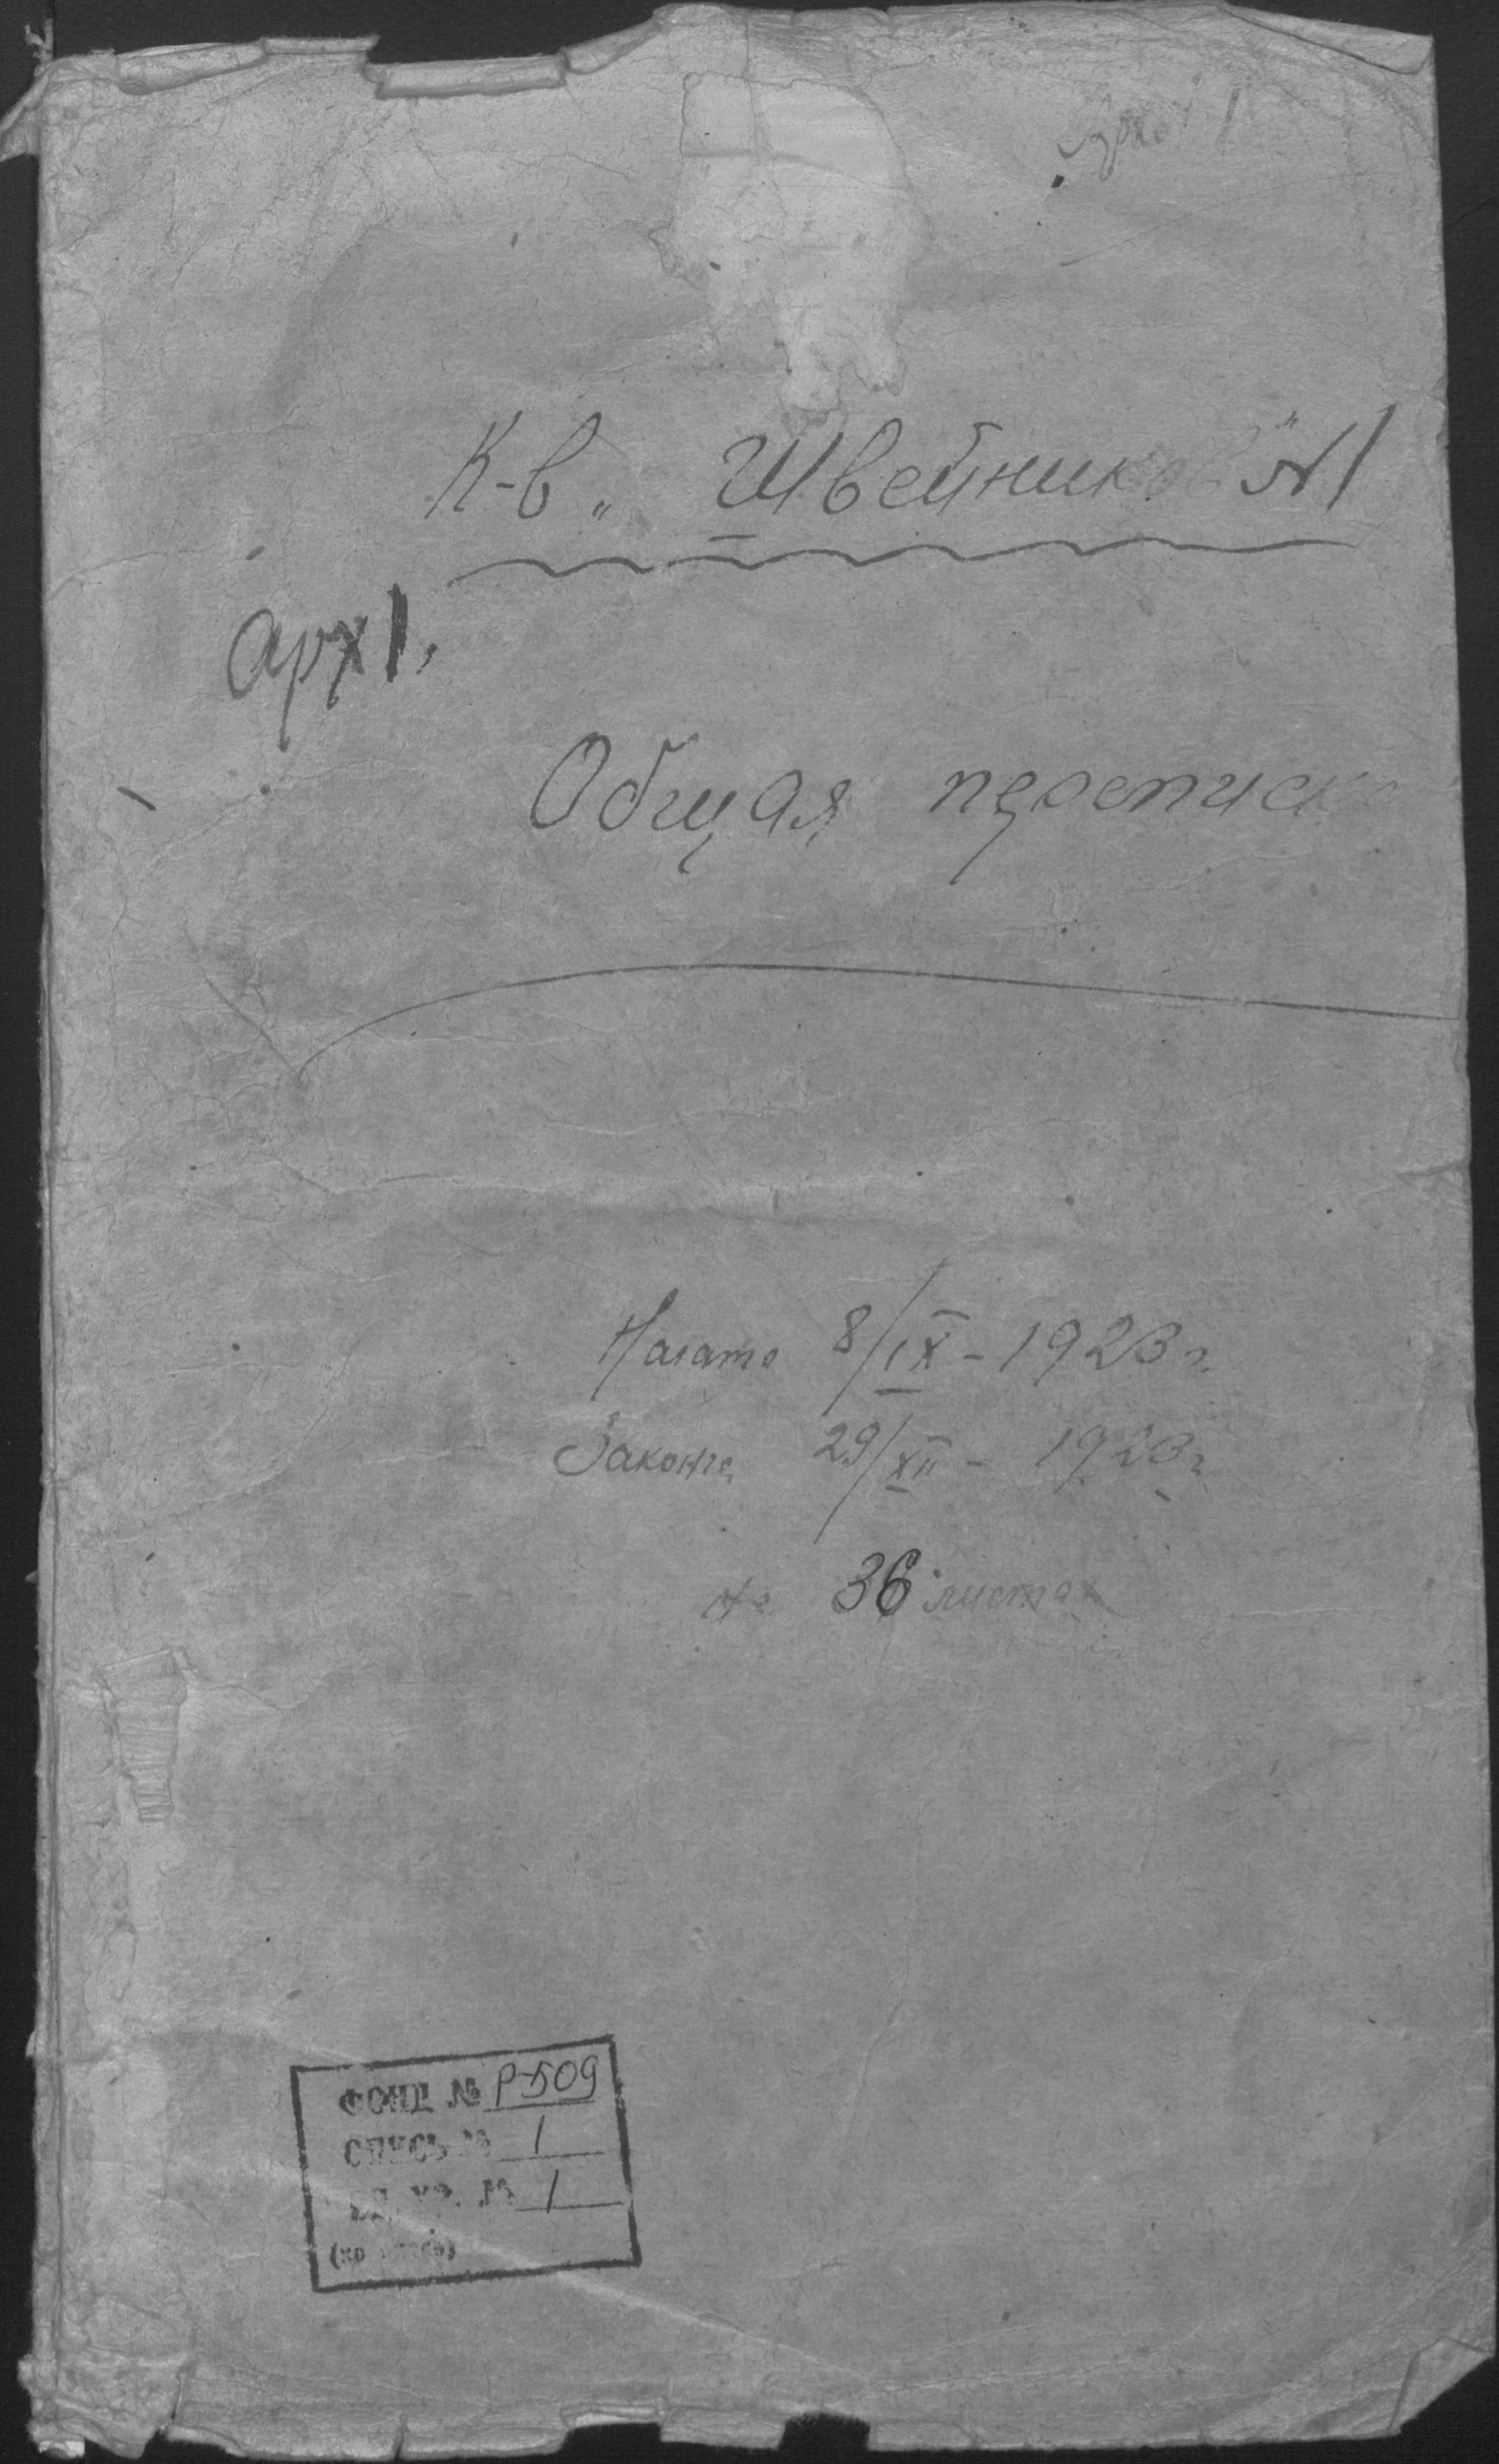 арх 1
К-в „Швейников" № 1
арх 1.
Общая переписка
Начато 8/IX - 1923 г.
Законче 29/XII - 1923 г
на 36 листах
ФОНД № Р-509
ОПИСЬ № 1
ЕД. ХР. № 1